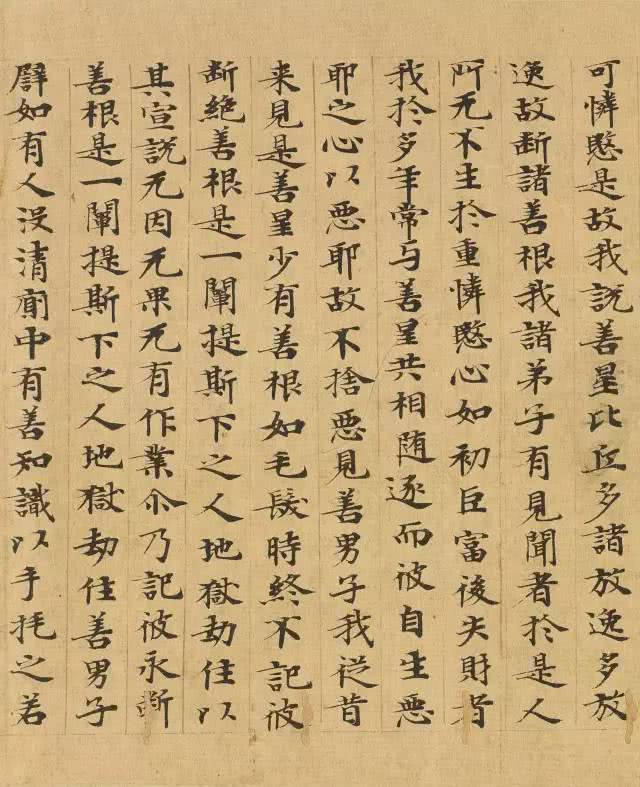 可憐愍是故我説善星比丘多諸放逸多放
逸故断諸善根我諸弟子有見聞者於是人
所无不生於重憐愍心如初巨富後失財者
我於多年常与善星共相随逐而彼自生惡
耶之心以惡耶故不捨惡見善男子我従昔
来見是善星少有善根如毛髮時終不記彼
断絶善根是一闡提斯下之人地獄劫住以
其宣説无因无果无有作業尒乃記彼永断
善根是一闡提斯下之人地獄劫住善男子
譬如有人没清廁中有善知識以手㧌之若